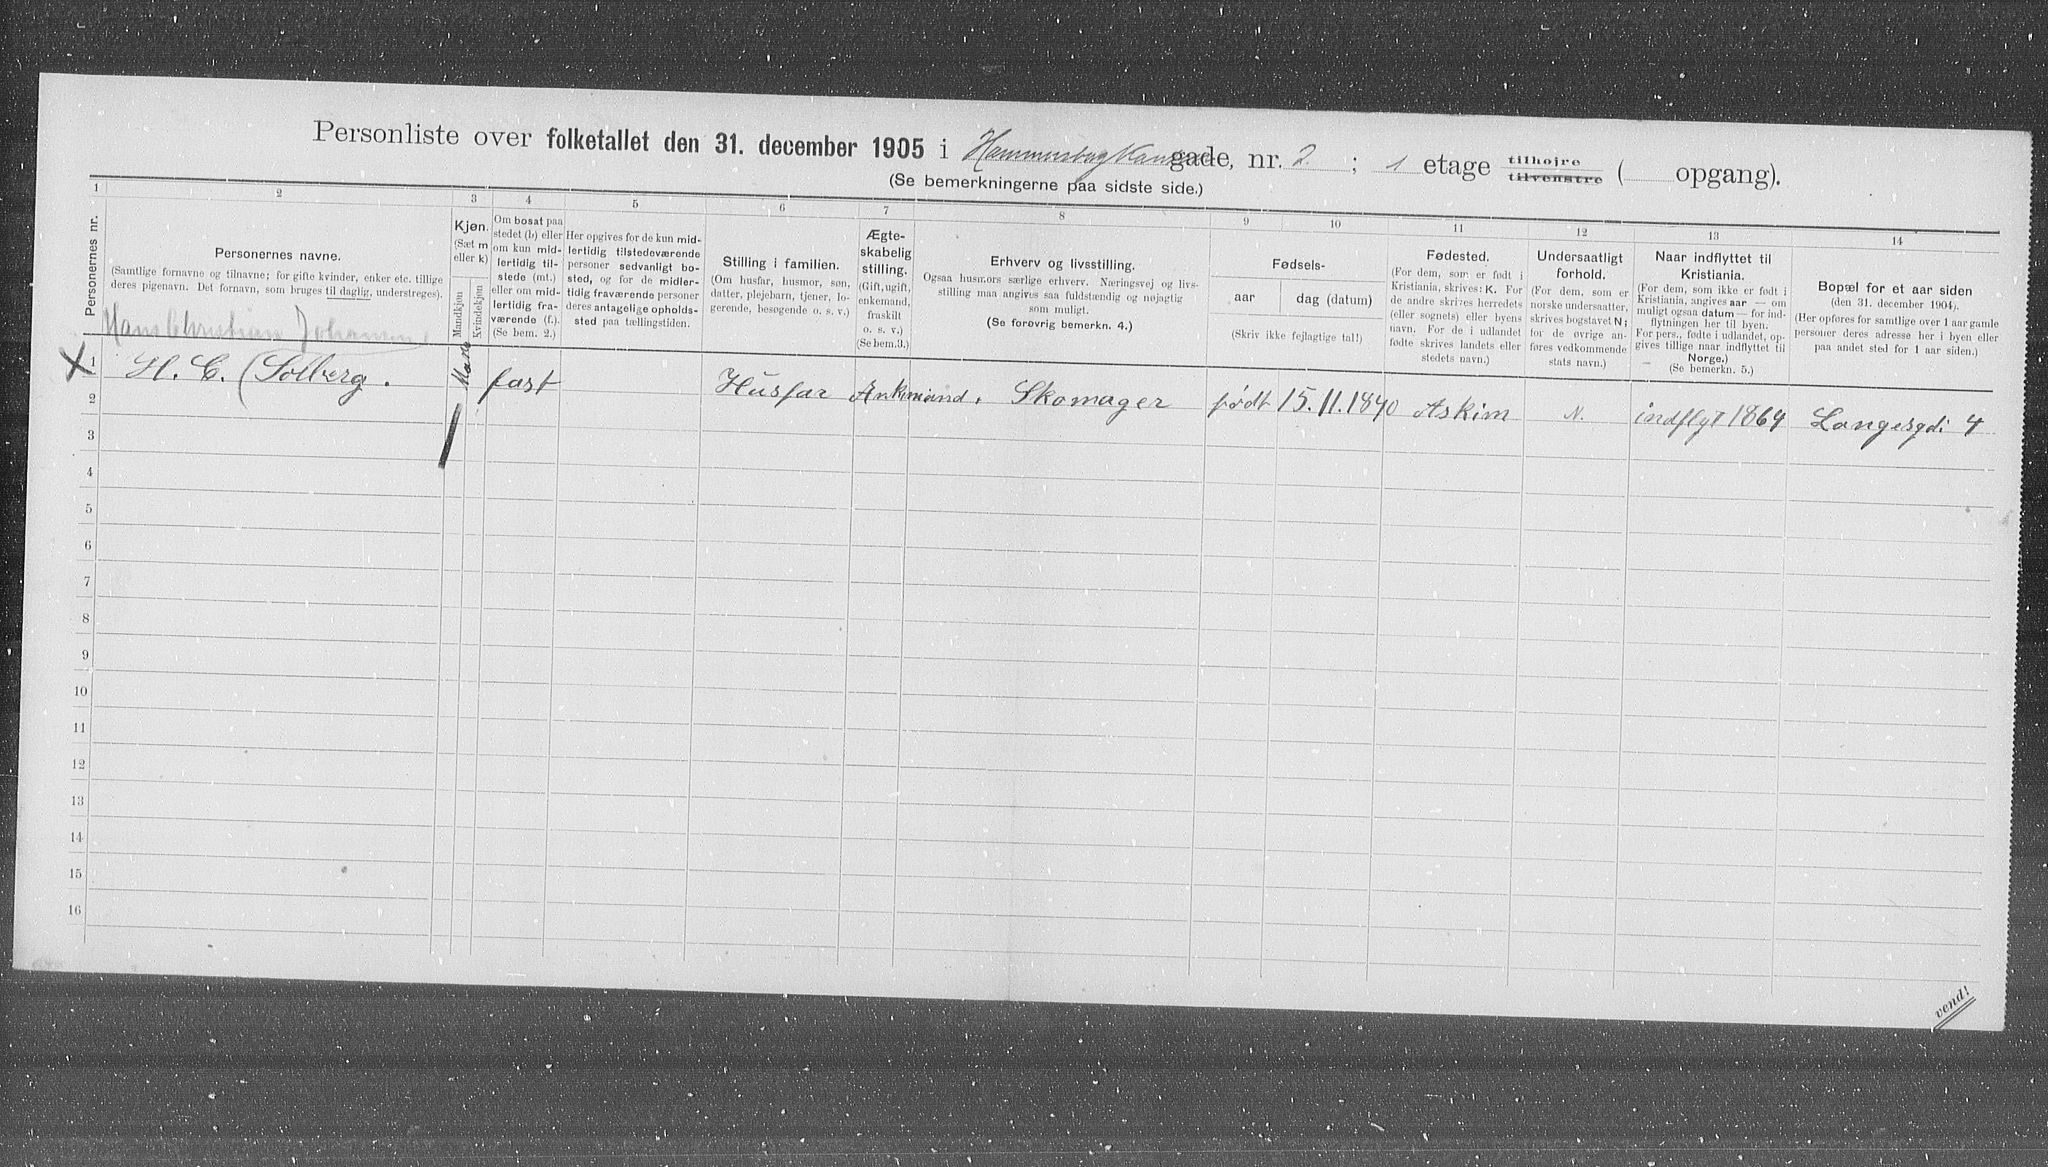 Personliste over folketallet den 31. december 1905 i Hammersborg gade, nr. 2 ; 1 etage tilhøjre tilvenstre ( opgang).
(Se bemerkningerne paa sidste side.)
1 2 3 4 5 6 7 8 9 10 11 12 13 14
Personernes nr.
Personernes navne.
(Samtlige fornavne og tilnavne; for gifte kvinder, enker etc. tillige
deres pigenavn. Det fornavn, som bruges til daglig, understreges).
Kjøn.
(Sæt m
eller k)
Mandkjøn
Kvindekjøn
Om bosat paa
stedet (b) eller
om kun mid-
lertidig til-
stede (mt.)
eller om mid-
lertidig fra-
værende (f.).
(Se bem. 2.)
Her opgives for de kun mid-
lertidig tilstedeværende
personer sedvanligt bo-
sted, og for de midler-
tidig fraværende personer
deres antagelige opholds-
sted paa tællingstiden.
Stilling i familien.
(Om husfar, husmor, søn,
datter, plejebarn, tjener, lo-
gerende, besøgende o. s. v.)
Ægte-
skabelig
stilling.
(Gift, ugift,
enkemand,
fraskilt
o. s. v.)
(Se bem. 3.)
Erhverv og livsstilling.
Ogsaa husmors særlige erhverv. Næringsvej og livs-
stilling maa angives saa fuldstændig og nøjagtig
som muligt.
(Se forøvrig bemerkn. 4.)
Fødsels-
aar
dag (datum)
(Skriv ikke fejlagtige tal!)
Fødested.
(For dem, som er født i
Kristiania, skrives: K. For
de andre skrives herredets
(eller sognets) eller byens
navn. For de i udlandet
fødte skrives landets eller
stedets navn.)
Undersaatligt
forhold.
(For dem, som er
norske undersaatter,
skrives bogstavet N;
for de øvrige an-
føres vedkommende
stats navn.)
Naar indflyttet til
Kristiania.
(For dem, som ikke er født i
Kristiania, angives aar — om
muligt ogsaa datum — for ind-
flytningen her til byen.
For pers., fødte i udlandet, op-
gives tillige naar indflyttet til
Norge.)
(Se bemerkn. 5.)
Bopæl for et aar siden
(den 31. december 1904).
(Her opføres for samtlige over 1 aar gamle
personer deres adresse her i byen eller
paa andet sted for 1 aar siden.)
Hans Christian Johansen
1 H. C. (Solberg. Mand fast Husfar Enkemand. Skomager født 15.11.1840 Askim N. indflyt 1864 Langesgdi 4
2
3
4
5
6
7
8
9
10
11
12
13
14
15
16
vend!